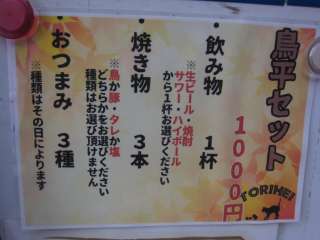 鳥平セット
1000円
・飲み物 1杯
※生ビール・焼酎
サワー・ハイボール
から1杯お選びください
・焼き物 3本
※鳥か豚・タレか塩
どちらかをお選びください
種類はお選び頂けません
・おつまみ 3種
※種類はその日によります
TORIHEI